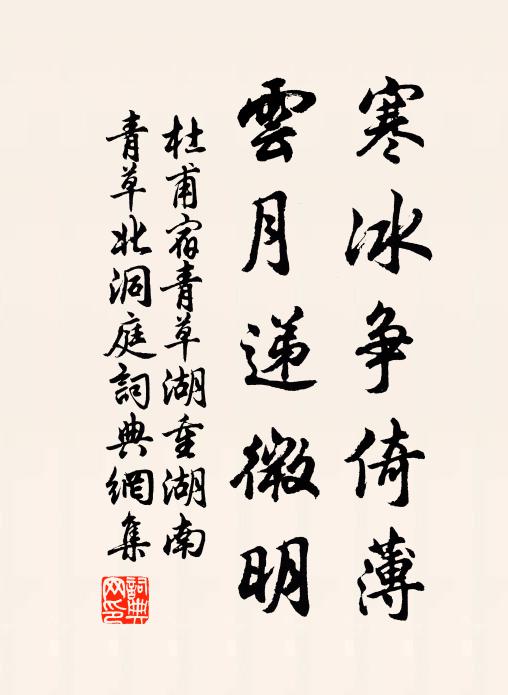 寒冰争倚薄
雲月递微明
杜甫宿青草湖重湖南
青草北洞庭詞典網集
詞典网印